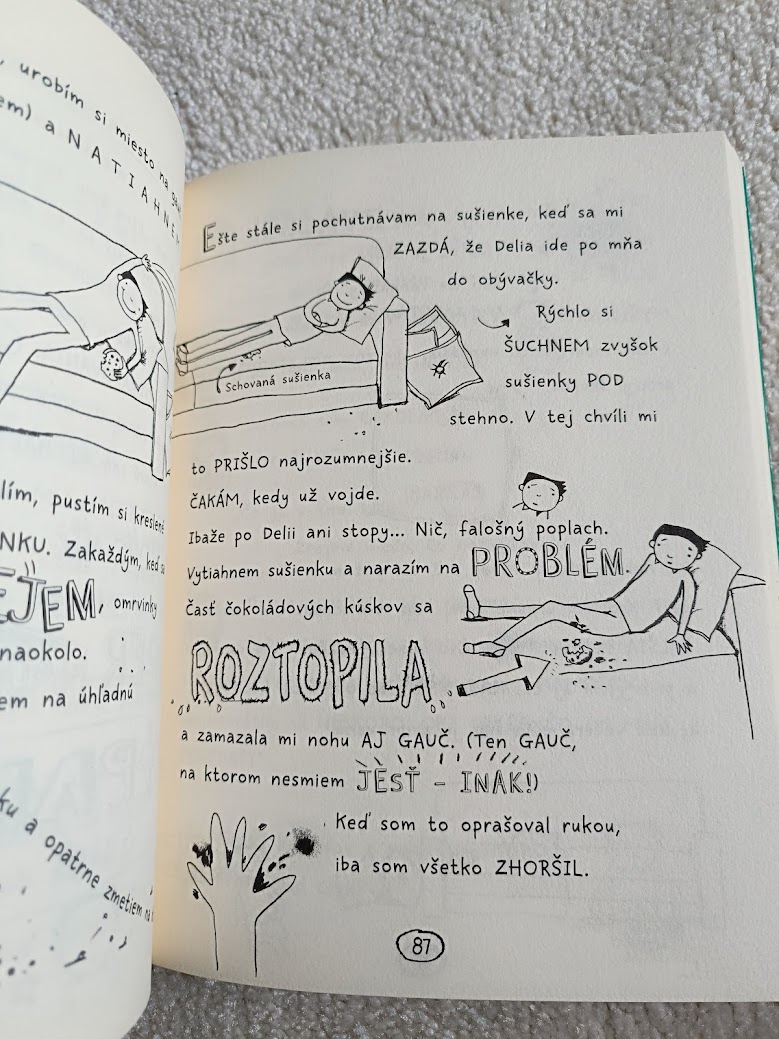 urobím si miesto na
a NATIAHNEM
pustím si kreslené
Zakaždým, keď sa
omrvinky
naokolo.
na úhľadnú
a opatrne zmetiem na
Ešte stále si pochutnávam na sušienke, keď sa mi
ZAZDÁ, že Delia ide po mňa
do obývačky.
Rýchlo si
ŠUCHNEM zvyšok
sušienky POD
stehno. V tej chvíli mi
Schovaná sušienka
to PRIŠLO najrozumnejšie.
ČAKÁM, kedy už vojde.
Ibaže po Delii ani stopy... Nič, falošný poplach.
Vytiahnem sušienku a narazím na PROBLÉM.
Časť čokoládových kúskov sa
ROZTOPILA
a zamazala mi nohu AJ GAUČ. (Ten GAUČ,
na ktorom nesmiem JESŤ - INAK!)
Keď som to oprašoval rukou,
iba som všetko ZHORŠIL.
87